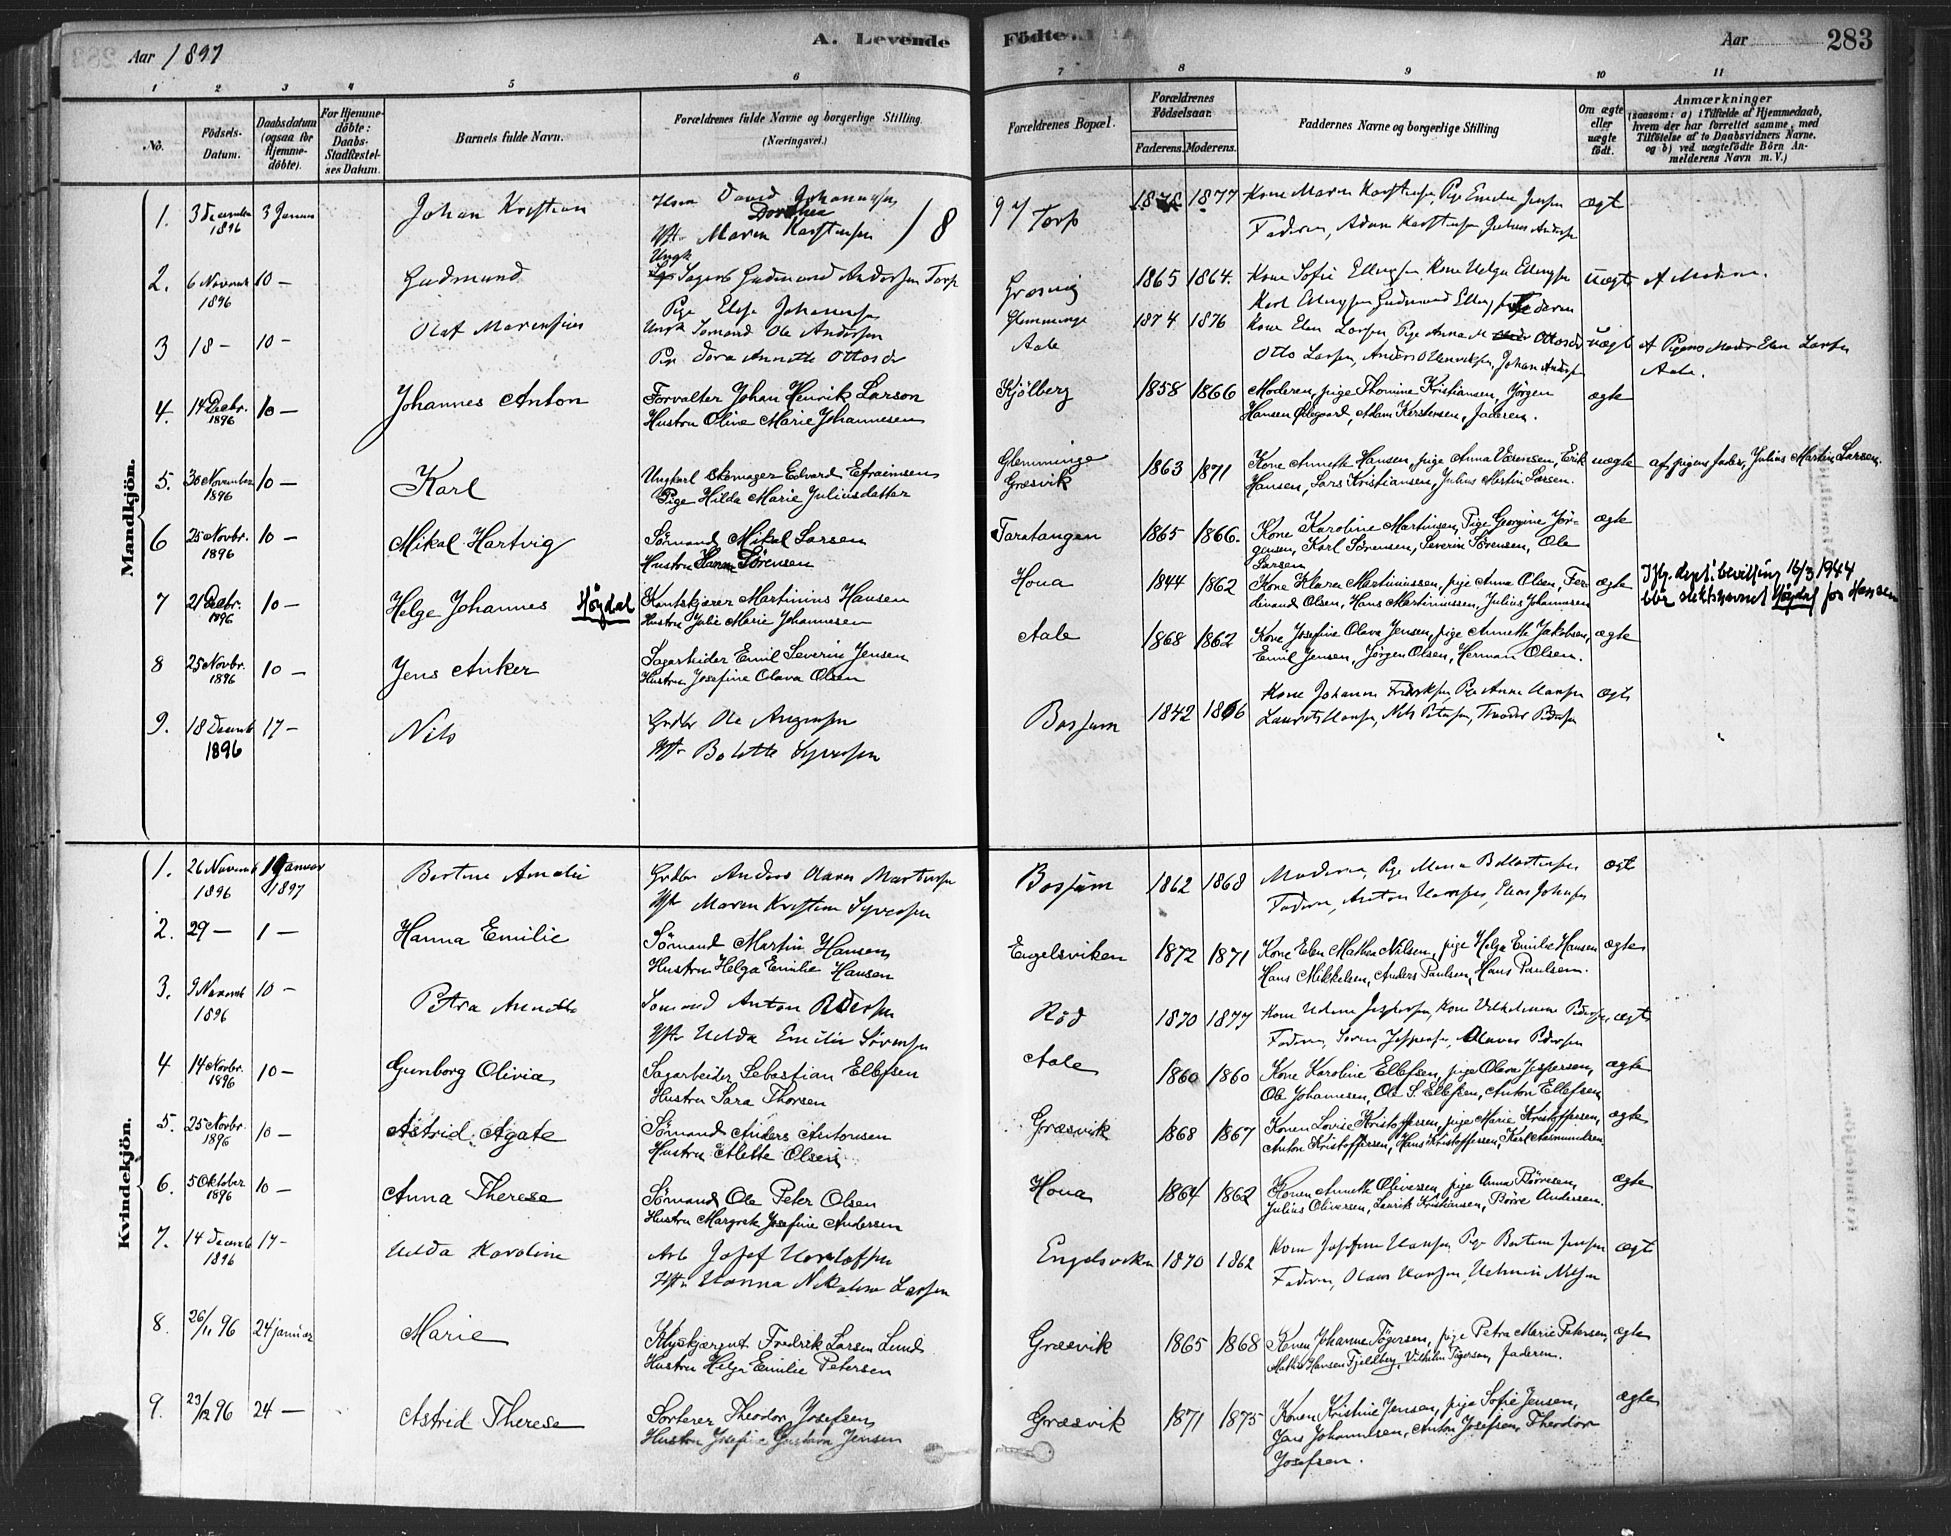 Aar 1897
A. Levende Födte.
Aar
283
1 2 3 4 5 6 7 8 9 10 11
No.
Födsels-Datum.
Daabsdatum (ogsaa for Hjemmedöbte).
For Hjemmedöbte: Daabs-Stadfæstelses Datum.
Barnets fulde Navn.
Forældrenes fulde Navne og borgerlige Stilling. (Næringsvei.)
Forældrenes Bopæl.
Forældrenes Födselsaar.
Faderens. Moderens.
Faddernes Navne og borgerlige Stilling
Om ægte eller uægte födt.
Anmærkninger
(saasom: a) i Tilfælde af Hjemmedaab, hvem der har forrettet samme, med Tilföielse af to Daabsvidners Navne, og b) ved uægtefödte Börn Anmelderens Navn m. V.)
Mandkjön.
1. 3 Decembr 1896 3 Januar Johan Kristian David Johannesen
Dorthea
Maren Karstensen Torp 1877 Kone Maren Karstensen, Pige Emilie Jensen ægt
Faderen, Adam Karstensen
2. 6 Novemb 1896 10 — Gudmund Ungk Sagarb Gudmund Andersen Torp
Pige Elise Johannesen Græsvig 1865 1864. Kone Sofie Ellingsen Kone Helga Ellingsen uægt A Moderen.
Karl Ellingsen Gudmund Ellingsen Faderen
3 18 — 10 — Olaf Marensius Ungk Sömand Ole Andersen
Pige Dora Annette Ottosdr Glemminge
Aale 1874 1876 Kone Elen Larsen Pige Anna M Ottosdr uægt A Pigens Moder Elen Larsen
Otto Larsen, Anders Henriksen, Johan Andersen Aale.
4. 14 Decbr. 1896 10 — Johannes Anton Forvalter Johan Henrik Larson
Hustru Oline Marie Johannesen Kjölberg 1858 1866 Moderen, pige Thomine Kristiansen, Jörgen ægte
Hansen Ödegaard, Adam Kerstensen, Faderen.
5. 30 November 1896 10 — Karl Ungkarl Skomager Edvard Efraimsen
Pige Hilda Marie Juliusdatter Glemminge
Græsvik 1863 1871 Kone Annette Hansen, pige Anna Sörensen, Erik uægte af pigens fader, Julius Martin Larsen.
Hansen, Lars Kristiansen, Julius Martin Larsen.
6 25 Novbr. 1896 10 — Mikal Hartvig Sömand Mikal Larsen
Hustru Hanna Sörensen Taratangen 1865 1866. Kone Karoline Martinsen, Pige Georgine Jör- ægte
gensen, Karl Sörensen, Severin Sörensen, Ole
Larsen
7 21 Decbr. 1896 10 — Helge Johannes Höydal Kontskjærer Martinius Hansen
Hustru Julie Marie Johannesen Houa 1844 1862 Kone Klara Martinussen, pige Anna Olsen, Fer- ægte Iflg. dept. bevilling 16/3 1944
dinand Olsen, Hans Martinussen, Julius Johannesen blir slektsnavnet Höydal for Hansen
8 25 Novbr. 1896 10 — Jens Anker Sagarbeider Emil Severin Jensen
Hustru Josefine Olava Olsen Aale 1868 1862 Kone Josefine Olava Jensen, pige Annette Jakobsen, ægte
Emil Jensen, Jörgen Olsen, Herman Olsen.
9. 18 Decemb 1896 17 — Nils Grdbr Ole
Hstr Bolette Syversen Bossum 1842 1866 Kone Johanne Fredriksen, Pige Anna Hansen ægte
Laurits Hansen, Nils Petersen, Theodor Pedersen
Kvindekjön.
1. 26 Novemb 1896 1 Januar 1897 Bertine Amalie Grdbr Anders Olaves Martinsen
Hstr Maren Kristine Syversen Bossum 1862 1868 Moderen, Pige Maria ægt
Faderen, Anton Hansen, Elias Johnsen
2. 29 — 1 — Hanna Emilie Sömand Martin Hansen
Hustru Helga Emilie Hansen Engelsviken 1872 1871 Kone Elen Mathea Nilsen, pige Helga Emilie Hansen ægte
Hans Mikkelsen, Anders Paulsen, Hans Paulsen.
3. 9 Novemb 1896 10 — Petra Annette Sömand Anton Pedersen
Hstr Hilda Emilie Sörensen Röd 1870 1877 Kone Helene Jespersen, Kone Vilhelmine Pedersen, ægt
Faderen, Soren Jespersen, Olaves Pedersen
4 14 Novbr. 1896 10 — Gunborg Olivia Sagarbeider Sebastian Ellefsen
Hustru Sara Thorsen Aale 1860 1860 Kone Karoline Ellefsen, pige Olava Jespersen, ægte
Ole Johannesen, Ole S. Ellefsen, Anton Ellefsen
5. 25 Novbr. 1896 10 — Astrid Agate Sömand Anders Antonsen
Hustru Alette Olsen Græsvik 1868 1867 Konen Lovise Kristoffersen, pige Marie Kristoffersen, ægte
Anton Kristoffersen, Hans Kristoffersen, Karl Asmundsen
6. 5 Oktober 1896 10 — Anna Therese Sömand Ole Peter Olsen
Hustru Margrete Josefine Andersen Houa 1864 1862 Konen Annette Oliversen, pige Anna Börresen, ægte
Julius Oliversen, Laurits Kristiansen, Börre Andersen.
7. 14 Decemb 1896 17 — Hilda Karoline Arb Josef
Hstr Hanna Nikoline Larsen Engelsviken 1870 1862 Kone Josefine Hansen, Pige Bertine Jensen ægt
Faderen, Olaus Hansen, Helmin Nilsen
8. 26/11 96 24 januar Marie Fredrik Larsen Lund
Hustru Helga Emilie Petersen Græsvik 1865 1868 Konen Johanne Tögersen, pige Petra Marie Petersen, ægte
Mathis Hansen Fjeldberg, Vilhelm Tögersen, Faderen.
9. 23/12 96 24 — Astrid Therese Sorterer Theodor Josefsen
Hustru Josefine Gustava Jensen Græsvik 1871 1875 Konen Kristine Jensen, pige Sofie Jensen, ægte
Johannesen, Anton Josefsen, Theodor
Josefsen.